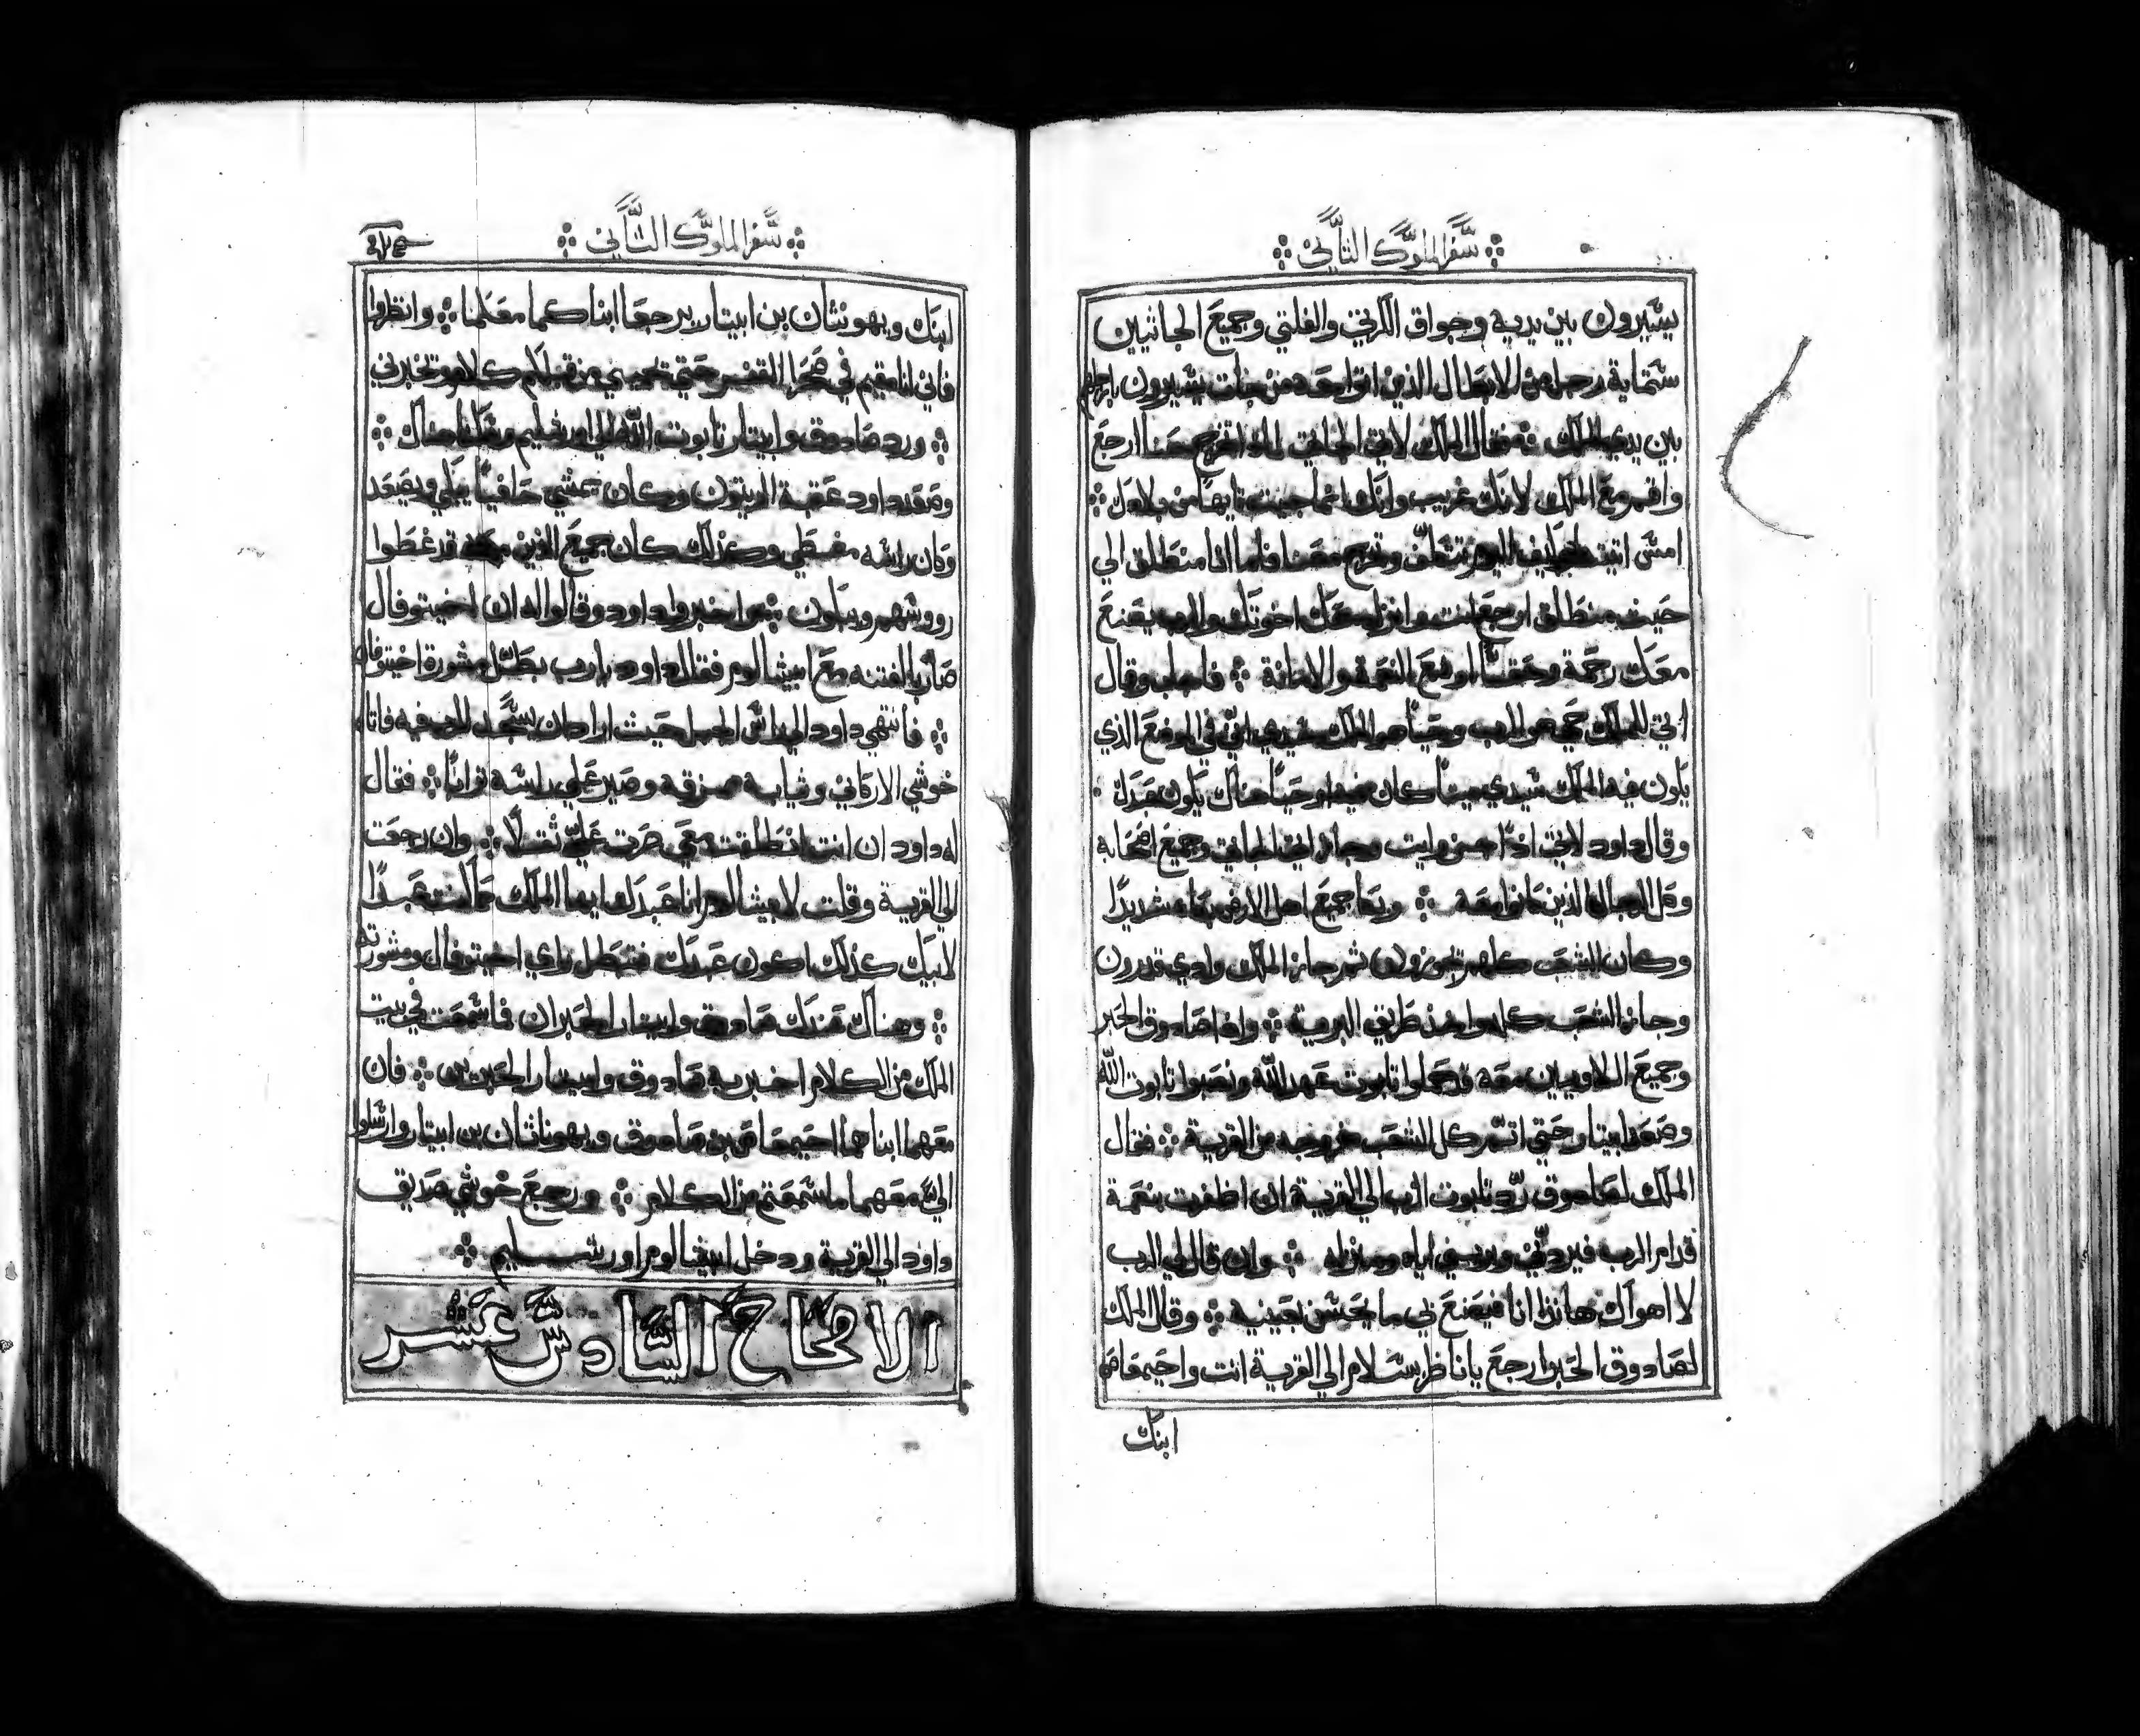 سفر الملوك الثاني
يسيرون بين يديه وجواق الكرتي والفلتي وجميع الجاثيين
ستماية رجل من الابطال الذين اتوا حده من جات يسيرون بارجلهم
بين يدي الملك فقال الملك لاتي الجاثي لماذا تخرج معنا ارجع
واقم مع الملك لانك غريب وانك انما جيت تايها من بلادك
امس اتيت اليوم تتكلف وتخرج معنا فاما انا منطلق الي
حيث منطلق ارجع انت وانزل معك اخوتك والرب يصنع
معك رحمة وحقا اوضع النعمة والامانة فاجاب وقال
اتي للملك حي هو الرب وحيا هو الملك سيدي اني في الموضع الذي
يكون فيه الملك سيدي ميتا كان فيه او حيا هناك يكون عبدك
وقال داود لاتي اذا احسن وايت وجاز اتي الجاثي وجميع اصحابه
وكل الرجال الذين كانوا معه وبكا جميع اهل الارض بكاء شديدا
وكان الشعب كلهم يجوزون ثم جاز الملك وادي قدرون
وجاز الشعب كله واخذ طريق البرية واذا صادوق الحبر
وجميع اللاويين معه قد حملوا تابوت عهد الله ونصبوا تابوت الله
وصعد ابيتار حتي اتم كل الشعب خروجه من القرية فقال
الملك لصادوق رد تابوت الرب الي القرية ان اظفرت بنعمة
قدام الرب فيردني ويريني اياه ومنزله وان قال لي الرب
لا اهواك هانذا انا فيصنع بي ما يحسن بعينيه وقال الملك
لصادوق الحبر ارجع يا ناظر بسلام الي القرية انت واحيمعاص
ابنك
سفر الملوك الثاني
ابنك ويهونثان بن ابيتار يرجعا ابناكما معكما وانظروا
فاني انا مقيم في صحرا القفر حتي تجيني من قبلكم كلام وتخبرني
ورد صادوق وابيتار تابوت الله الي اورشليم ومكثا هناك
وصعد داود عقبة الزيتون وكان يمشي حافيا يبكي ويصعد
وكان راسه مغطي وكذلك كان جميع الذين معه قد غطوا
رووسهم ويبكون واخبروا داود وقالوا له ان اخيتوفال
صار بالفتنه مع ابيشالوم فقال داود يا رب بطل مشورة اخيتوفال
فانتهي داود الي راس الجبل حيث اراد ان يسجد للرب فيه فاتاه
خوشي الاركاني وثيابه ممزقه وصير علي راسه ترابا فقال
له داود ان انت انطلقت معي صرت علي ثقلا وان رجعت
الي القرية وقلت لابيشالوم انا عبدك ايها الملك كما كنت عبدا
لابيك كذلك اكون عبدك فتبطل راي اخيتوفال ومشورته
وهناك عندك صادوق وابيتار الحبران فما سمعت في بيت
الملك من الكلام اخبر به صادوق وابيتار الحبرين فان
معهما ابناهما احيمعاص بن صادوق ويهوناثان بن ابيتار وارسلوا
الي معهما ما سمعتم من الكلام ورجع خوشي صديق
داود الي القرية ودخل ابيشالوم اورشليم
الاصحاح السادس عشر